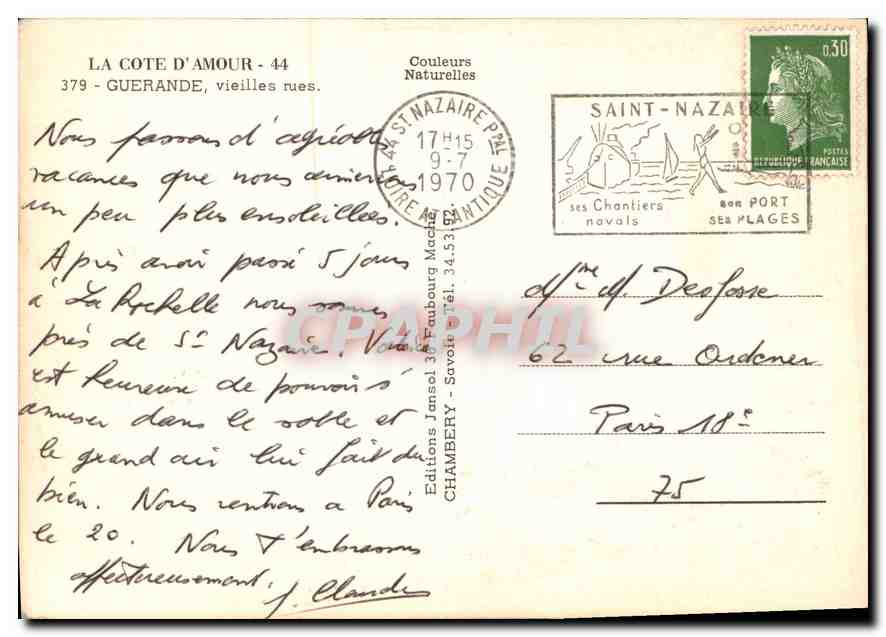 LA COTE D'AMOUR - 44
379 - GUERANDE, vieilles rues.
Couleurs
Naturelles
44 ST NAZAIRE Ppal
17H15
9-7
1970
LOIRE ATLANTIQUE
SAINT-NAZAIRE
ses Chantiers
navals
son PORT
SES PLAGES
0,30
POSTES
REPUBLIQUE FRANÇAISE
Nous passons d'agréables
vacances que nous aimerions
un peu plus ensoleillées.
Après avoir passé 5 jours
à La Rochelle nous sommes
près de St Nazaire. Valérie
est heureuse de pouvoir s'
amuser dans le sable et
le grand air lui fait du
bien. Nous rentrons a Paris
le 20. Nous t'embrassons
affectueusement.
J. Claude
Editions Jansol 36 Faubourg Maché
CHAMBERY - Savoie - Tél. 34.53.
CPAPHIL
Mme M. Desfosse
62 rue Ordener
Paris 18e
75